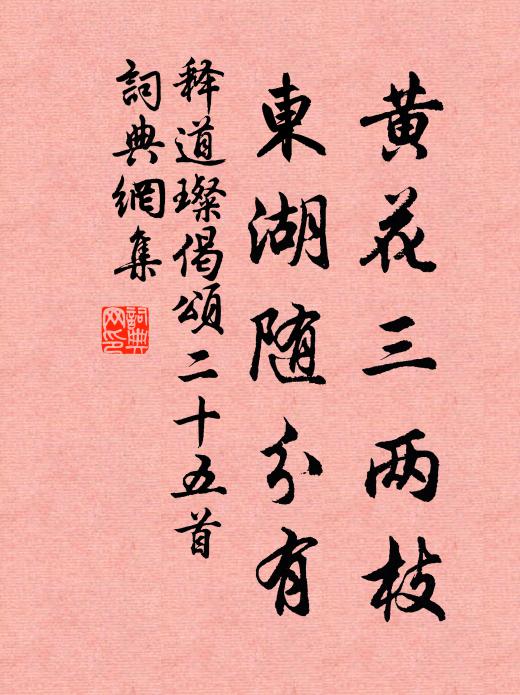 黄花三两枝
東湖随分有
释道璨偈頌二十五首
詞典網集
詞典网印